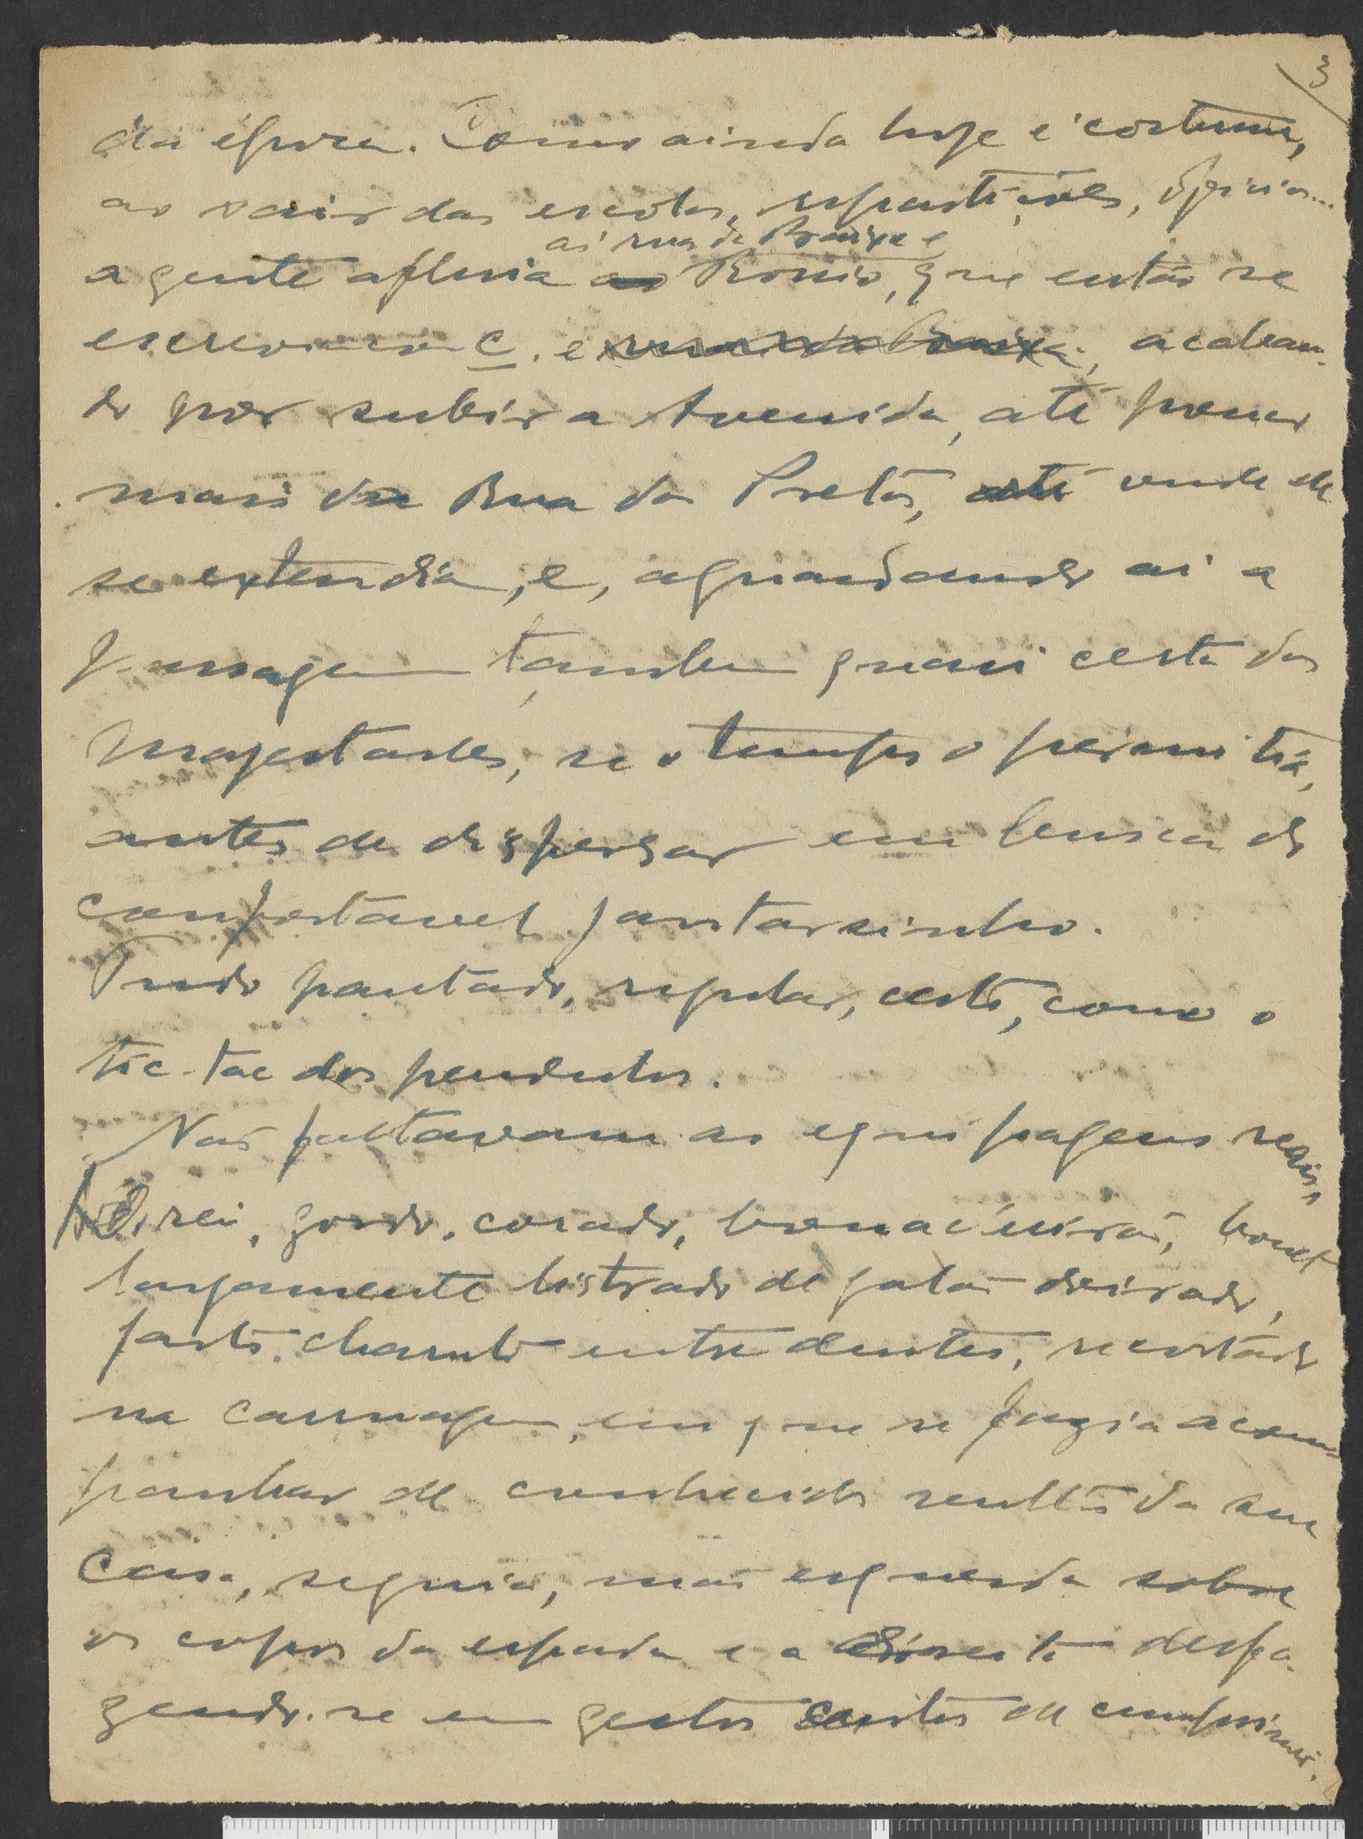 3
da época. Como ainda hoje é costume,
ao sair das escolas, repartições, oficinas...
á rua da Baixa e
a gente afluia ao Rossio, que então se
escrevia com C. e rua da Baixa, acaban-
do por subir a Avenida, até pouco
mais da Rua do Pretas, até onde ela
se extendia, e, aguardando ai a
passagem tambem quasi certa das
Magestades, se o tempo o permitia,
antes de dispersar em busca do
confortavel jantarsinho.
Tudo pautado, regular, certo, como o
tic-tac dos pendulos.
Não faltavam as equipagens reais,
El-rei, gordo, corado, bonacheirão, bonet
largamente listrado de galão doirado,
farto charuto entre dentes, recostado
na carruagem, em que se fazia acom-
panhar de conhecido vulto da sua
Casa, seguia, mão esquerda sobre
os copos da espada e a direita desfa-
zendo-se em gestos curtos de cumprimento.